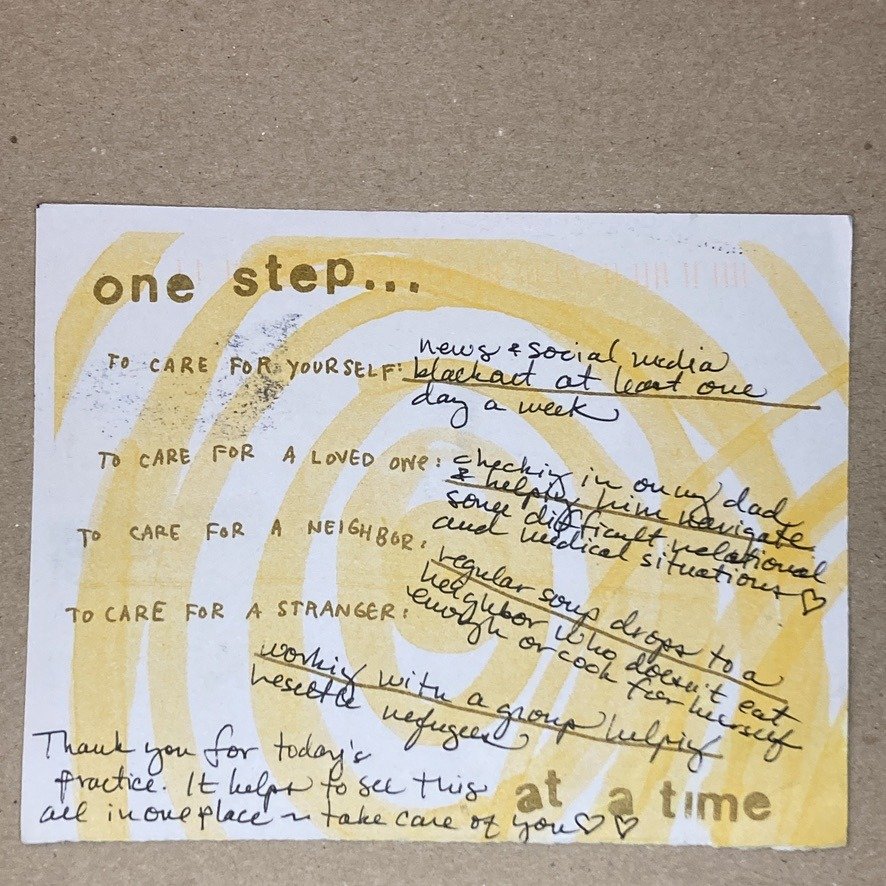 one step...
TO CARE FOR YOURSELF:
news & social media
blackout at least one
day a week
TO CARE FOR A LOVED ONE:
checking in on my dad
& helping him navigate
some difficult relational
and medical situations ♡
TO CARE FOR A NEIGHBOR:
regular soup drops to a
neighbor who doesn't eat
enough or cook for herself
TO CARE FOR A STRANGER:
working with a group helping
resettle refugees
Thank you for today's
practice. It helps to see this
all in one place ~ take care of you ♡ ♡
at a time